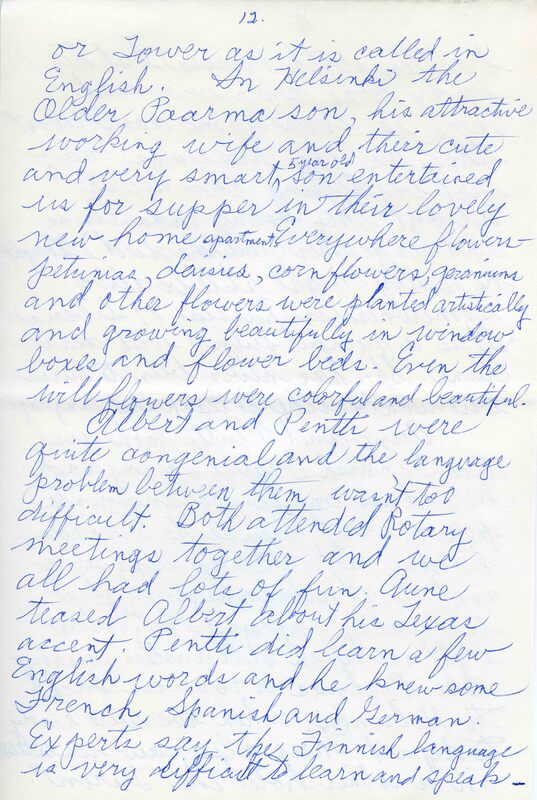 12.
or Tower as it is called in
English. In Helsinki the
Older Paarma son, his attractive
working wife and their cute
and very smart 5 year old son entertained
us for supper in their lovely
new home apartment. Everywhere flowers-
petunias, daisies, cornflowers, geraniums
and other flowers were planted artistically
and growing beautifully in window
boxes and flower beds. Even the
will flowers were colorful and beautiful.
Albert and Pentti were
quite congenial and the language
problem between them wasn't too
difficult. Both attended Rotary
meetings together and we
all had lots of fun. Aune
teased Albert about his Texas
accent. Pentti did learn a few
English words and he knew some
French, Spanish and German.
Experts say the Finnish language
is very difficult to learn and speak-